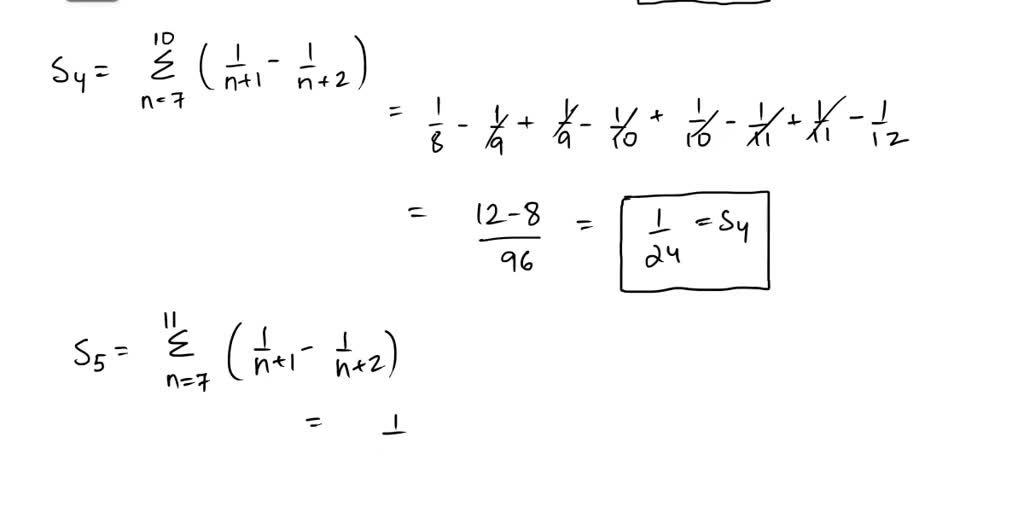 S4 = Σ_{n=7}^{10} (1/(n+1) - 1/(n+2))
= 1/8 - 1/9 + 1/9 - 1/10 + 1/10 - 1/11 + 1/11 - 1/12
= (12-8)/96 = 1/24 = S4
S5 = Σ_{n=7}^{11} (1/(n+1) - 1/(n+2))
= 1/